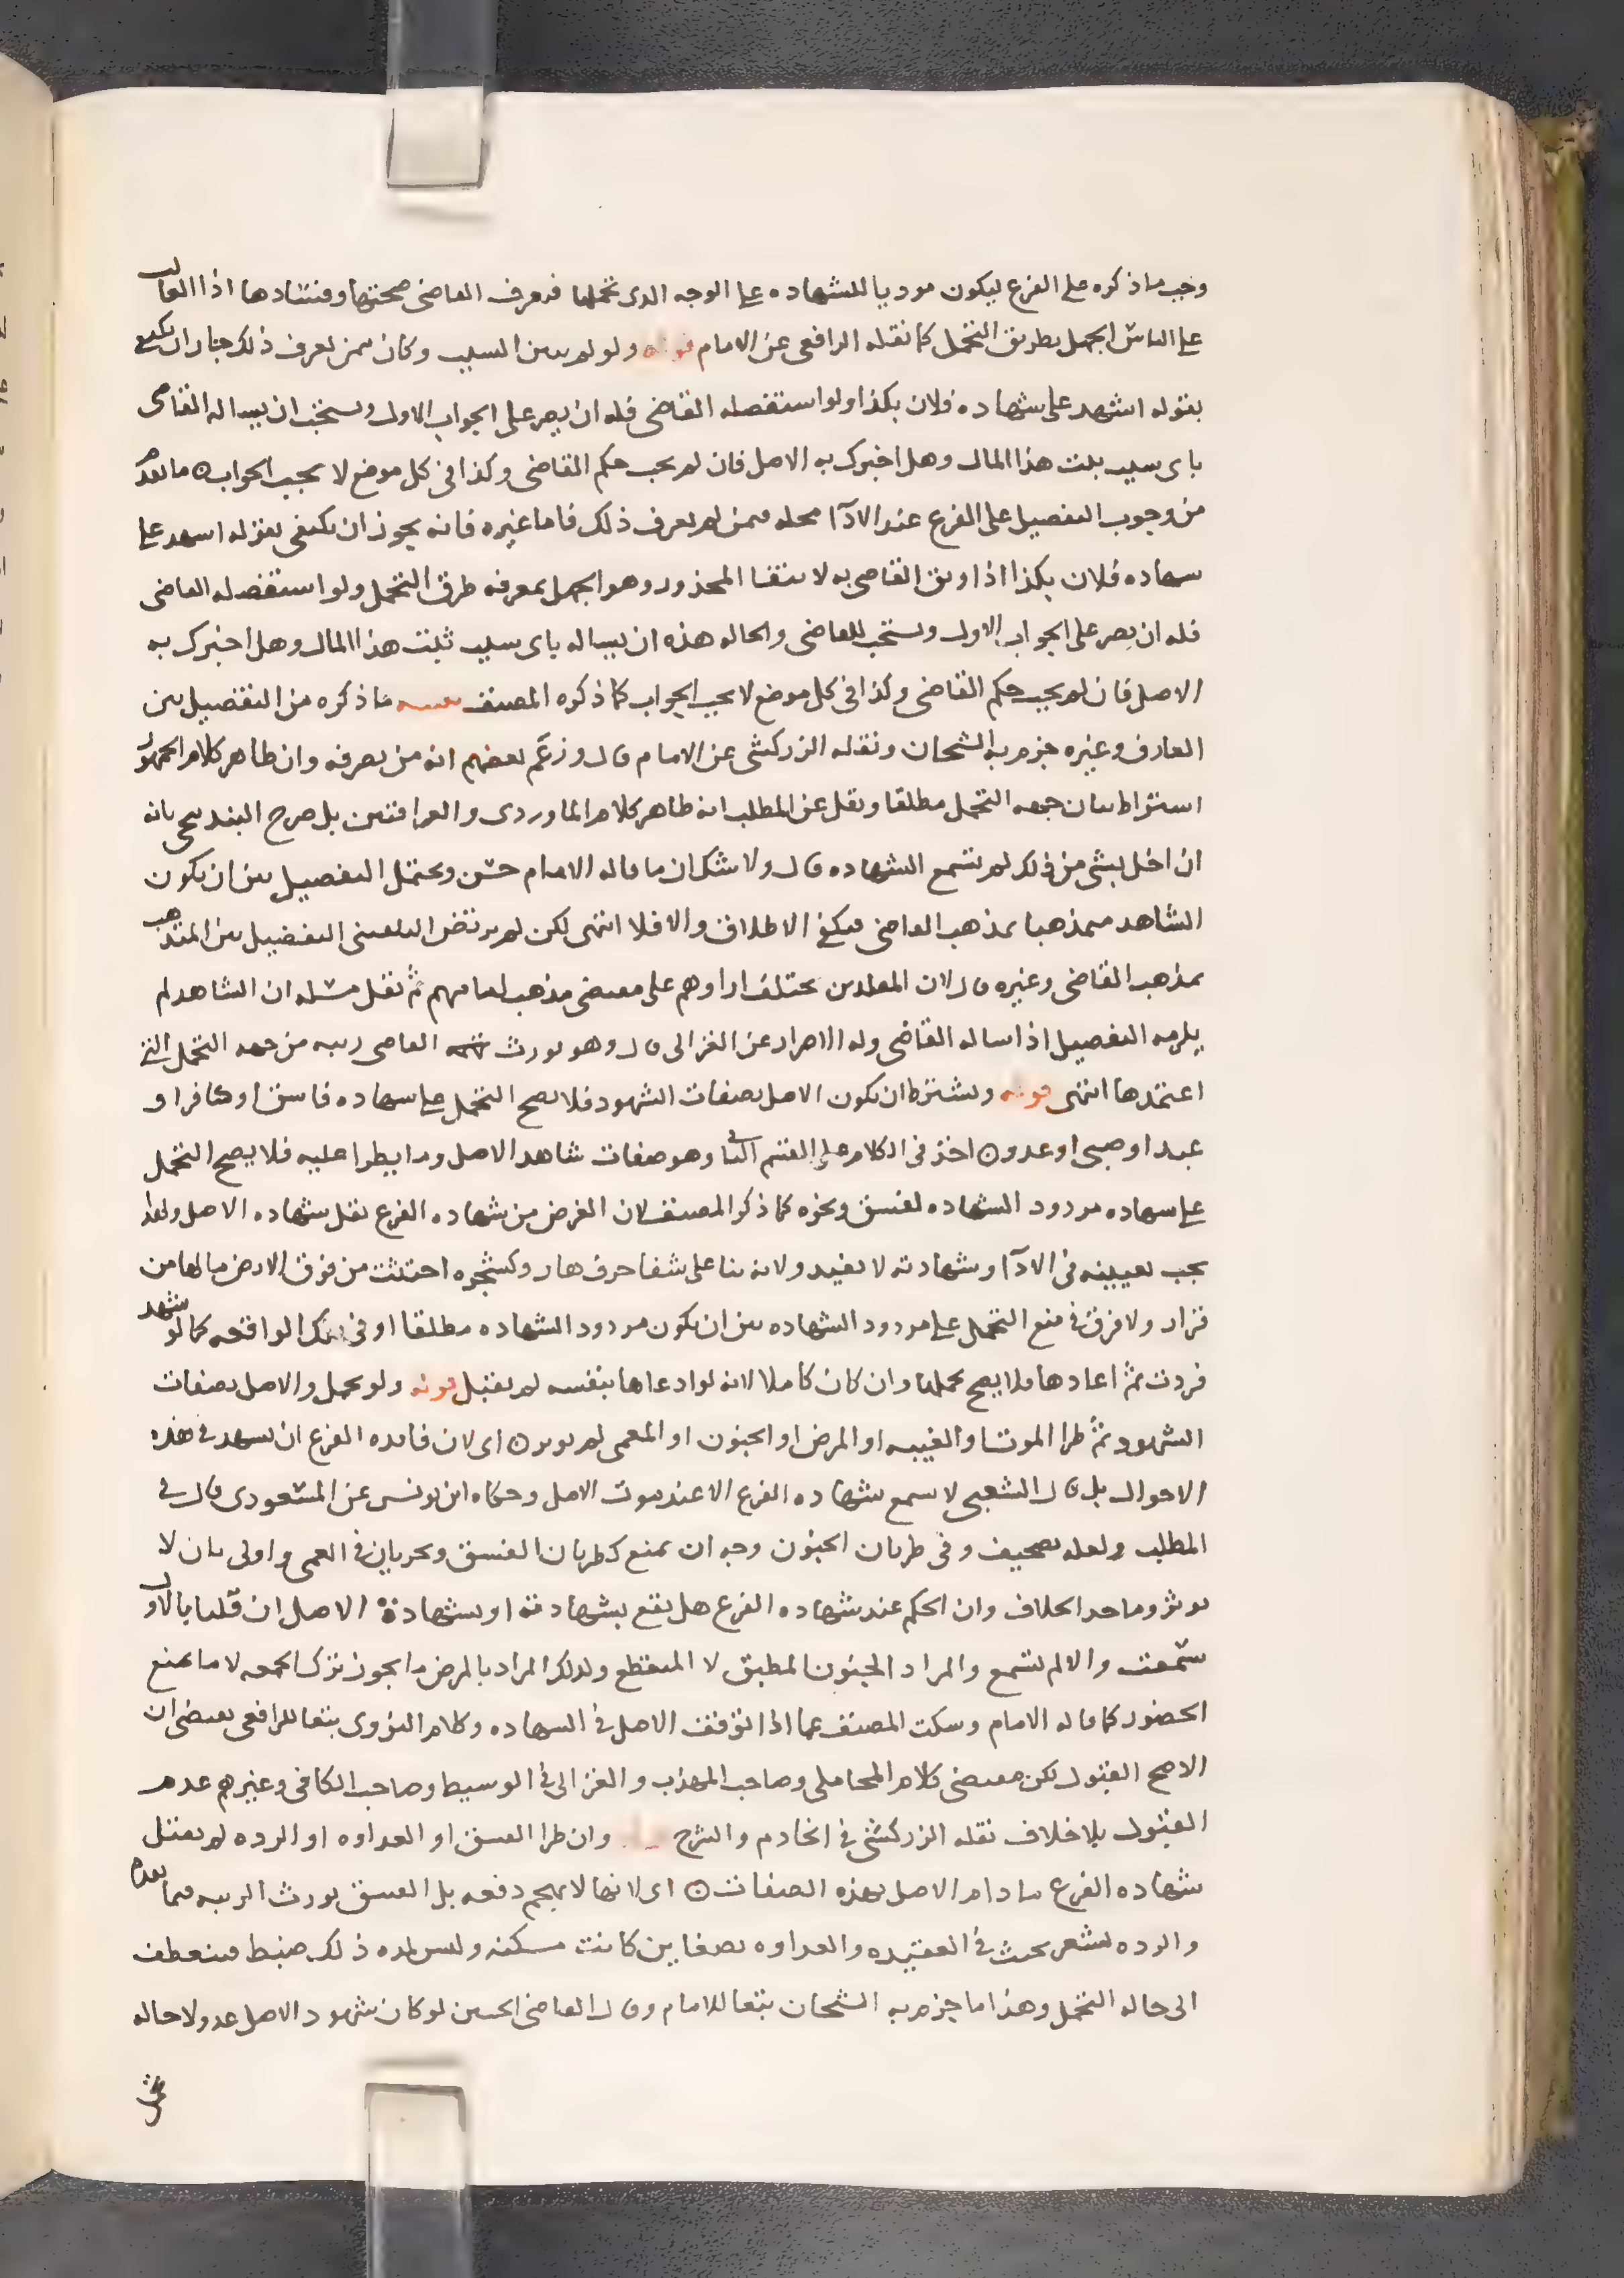 وجب ما ذكره على الفرع ليكون موديا للشهاده على الوجه الذى تحملها فيعرف القاضى صحتها وفسادها اذا الغالب
على الناس الجهل بطريق التحمل كما نقله الرافعى عن الامام قوله ولو لم يبين السبب وكان ممن يعرف ذلك جاز ان يكتفى
بقوله اشهد على شهاده فلان بكذا ولو استفصله القاضى فله ان يصر على الجواب الاول ويستحب ان يساله القاضى
باى سبب يثبت هذا المال وهل اخبرك به الاصل فان لم يجب حكم القاضى وكذا فى كل موضع لا يجب الجواب ما تقدم
من وجوب التفصيل على الفرع عند الادآ محله فيمن لم يعرف ذلك فاما غيره فانه يجوز ان يكتفى بقوله اشهد على
شهاده فلان بكذا اذا وثق القاضى به لانتفا المحذور وهو الجهل بمعرفه طرق التحمل ولو استفصله القاضى
فله ان يصر على الجواب الاول ويستحب للقاضى والحاله هذه ان يساله باى سبب ثبت هذا المال وهل اخبرك به
الاصل فان لم يجب حكم القاضى وكذا فى كل موضع لا يجب الجواب كما ذكره المصنف تنبيه ما ذكره من التفصيل بين
العارف وغيره جزم به الشيخان ونقله الزركشى عن الامام قال وزعم بعضهم انه من تصرفه وان ظاهر كلام الجمهور
اشتراط بيان جهه التحمل مطلقا ونقل عن المطلب انه ظاهر كلام الماوردى والعراقيين بل صرح البندنيجى بانه
ان اخل بشى من ذلك لم تسمع الشهاده قال ولا شك ان ما قاله الامام حسن ويحتمل التفصيل بين ان يكون
الشاهد متمذهبا بمذهب القاضى فيكفى الاطلاق والا فلا انتهى لكن لم يرتض البلقينى التفصيل بين المتمذهب
بمذهب القاضى وغيره قال لان المقلدين تختلف اراوهم على مقتضى مذهب امامهم ثم نقل مسله ان الشاهد لم
يلزمه التفصيل اذا ساله القاضى وله الاصرار عن الغزالى قال وهو يورث القاضى ريبه من جهه التحمل التى
اعتمدها انتهى قوله ويشترط ان يكون الاصل بصفات الشهود فلا يصح التحمل على شهاده فاسق او كافر او
عبد او صبى او عدو اخذ فى الكلام على القسم الثانى وهو صفات شاهد الاصل وما يطرا عليه فلا يصح التحمل
على شهاده مردود الشهاده لفسق ونحوه كما ذكر المصنف لان الغرض من شهاده الفرع نقل شهاده الاصل ولهذا
يجب تعيينه فى الادآ وشهادته لا تفيد ولانه بنا على شفا جرف هار وكشجره اجتثت من فوق الارض ما لها من
قرار ولا فرق فى منع التحمل على مردود الشهاده بين ان يكون مردود الشهاده مطلقا او فى تلك الواقعه كما لو شهد
فردت ثم اعادها فلا يصح تحملها وان كان كاملا لانه لو ادعاها بنفسه لم تقبل قوله ولو تحمل والاصل بصفات
الشهود ثم طرا الموت او الغيبه او المرض او الجنون او العمى لم يوثر اى لان فايده الفرع ان يشهد فى هذه
الاحوال بل قال الشعبى لا تسمع شهاده الفرع الا عند موت الاصل وحكاه ابن يونس عن المسعودى قال فى
المطلب ولعله تصحيف وفى طريان الجنون وجه ان يمنع كطريان الفسق ويجريان فى العمى واولى بان لا
يوثر وماخذ الخلاف وان الحكم عند شهاده الفرع هل يقع بشهادته او بشهادة الاصل ان قلنا بالاول
سمعت والا لم تسمع والمراد الجنون المطبق لا المتقطع ولذلك المراد بالمرض ما يجوز ترك الجمعه لا ما يمنع
الحضور كما قاله الامام وسكت المصنف عما اذا توقف الاصل فى الشهاده وكلام النووى تبعا للرافعى يقتضى ان
الاصح القبول لكن مقتضى كلام المحاملى وصاحب المهذب والغزالى فى الوسيط وصاحب الكافى وغيرهم عدم
القبول بلا خلاف نقله الزركشى فى الخادم والشرح قوله وان طرا الفسق او العداوه او الرده لم تقبل
شهاده الفرع ما دام الاصل بهذه الصفات اى لانها لا تهجم دفعه بل الفسق يورث الريبه فيما تقدم
والرده تشعر بخبث فى العقيده والعداوه بضغاين كانت مستكنه وليس لمده ذلك ضبط فينعطف
الى حاله التحمل وهذا ما جزم به الشيخان تبعا للامام وقال القاضى الحسين لو كان شهود الاصل عدولا حاله